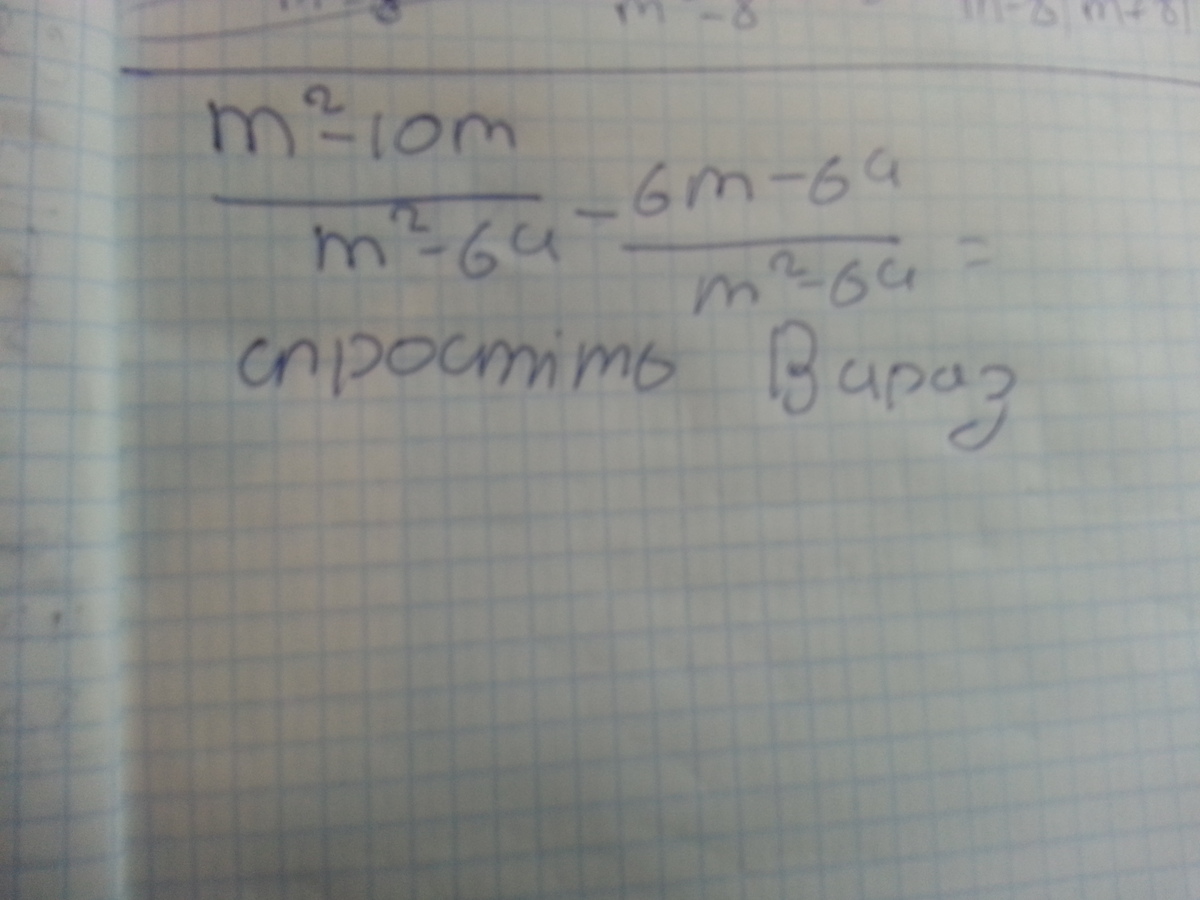 m² - 10m
m² - 64 - 6m - 64
m² - 64 =
спростіть Вираз